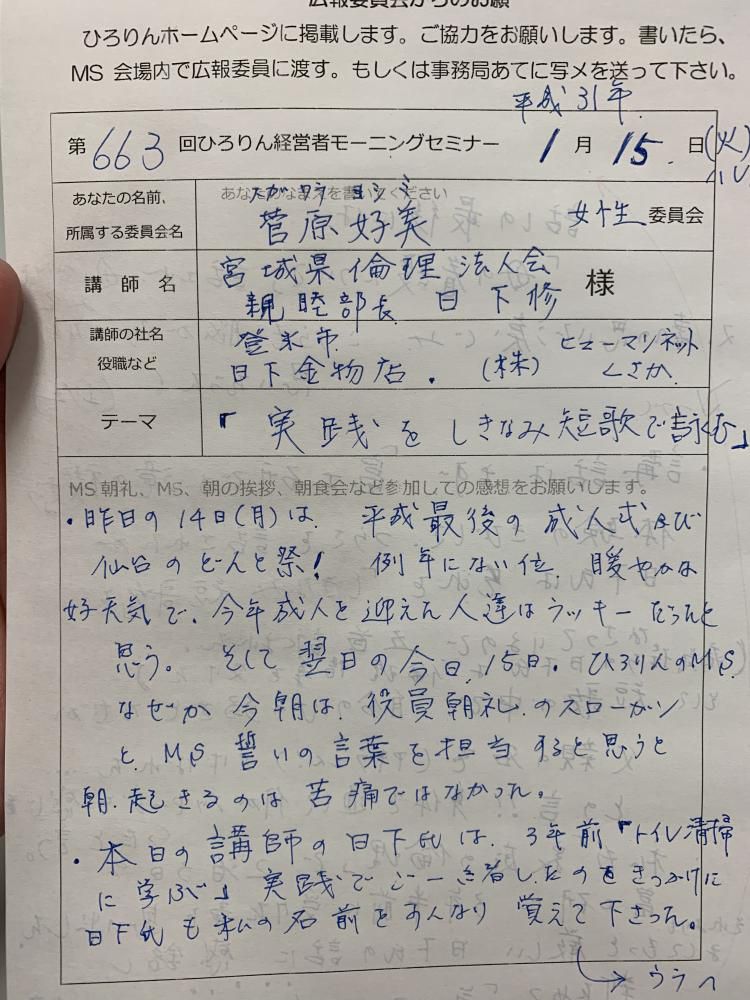 広報委員会からのお願
ひろりんホームページに掲載します。ご協力をお願いします。書いたら、
MS 会場内で広報委員に渡す。もしくは事務局あてに写メを送って下さい。
平成31年
第663回ひろりん経営者モーニングセミナー 1月15日(火)
ハレ
あなたの名前、
所属する委員会名
菅原好美 女性委員会
講師名
宮城県倫理法人会
親睦部長 日下修 様
講師の社名
役職など
登米市 ヒューマンネット
日下金物店. (株) くさか
テーマ
「実践をしきなみ短歌で詠む」
MS朝礼、MS、朝の挨拶、朝食会など参加しての感想をお願いします。
・昨日の14日(月)は、平成最後の成人式及び
仙台のどんと祭! 例年にない位、暖やかな
好天気で、今年成人を迎えた人達はラッキーだったと
思う。そして翌日の今日、15日。ひろりんのMS
なぜか今朝は、役員朝礼のスローガン
と、MS誓いの言葉を担当すると思うと
朝、起きるのは苦痛ではなかった。
・本日の講師の日下氏は、3年前「トイレ清掃
に学ぶ」実践でご一緒したのをきっかけに
日下氏も私の名前をすんなり覚えて下さった。
→ウラへ